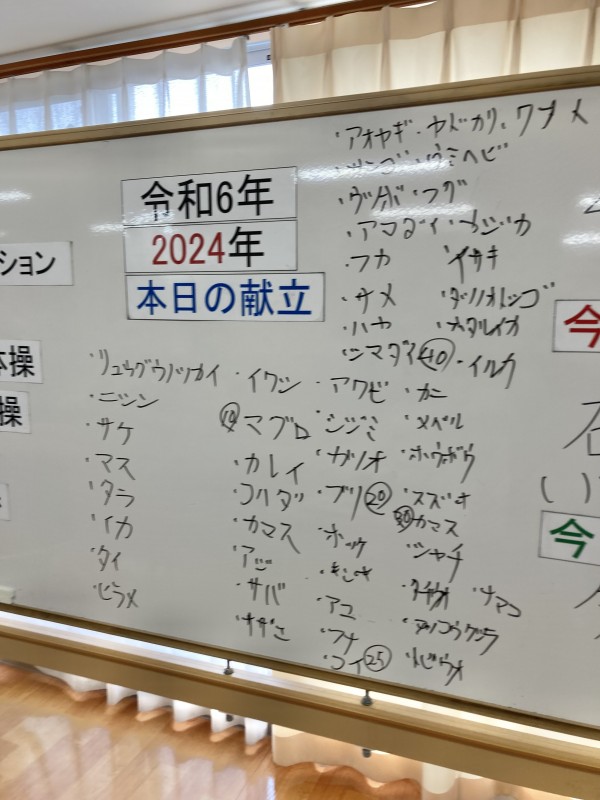 令和6年
2024年
本日の献立
ション
体操
操
・アオヤギ・ヤドカリ、ワカメ
・サンゴ・ウミヘビ
・フグ
・アマダイ・カジカ
・フカ イサキ
・サメ ・タツノオトシゴ
・ハヤ ・ホタルイカ
・シマダイ㊵・イルカ
・リュウグウノツカイ
・ニシン
・サケ
・マス
・タラ
・イカ
・タイ
・ヒラメ
・イワシ
⑩マグロ
・カレイ
・コハダ
・カマス
・アジ
・サバ
・サザエ
・アワビ
・シジミ
・カツオ
・ブリ⑳
・ホッケ
・キンキ
・アユ
・フナ
・コイ㉕
・カニ
・メバル
・ホウボウ
・スズキ
㉚カマス
・シャチ
・タチウオ ・ナマコ
・アンコウクジラ
・トビウオ
今
石
( )
今